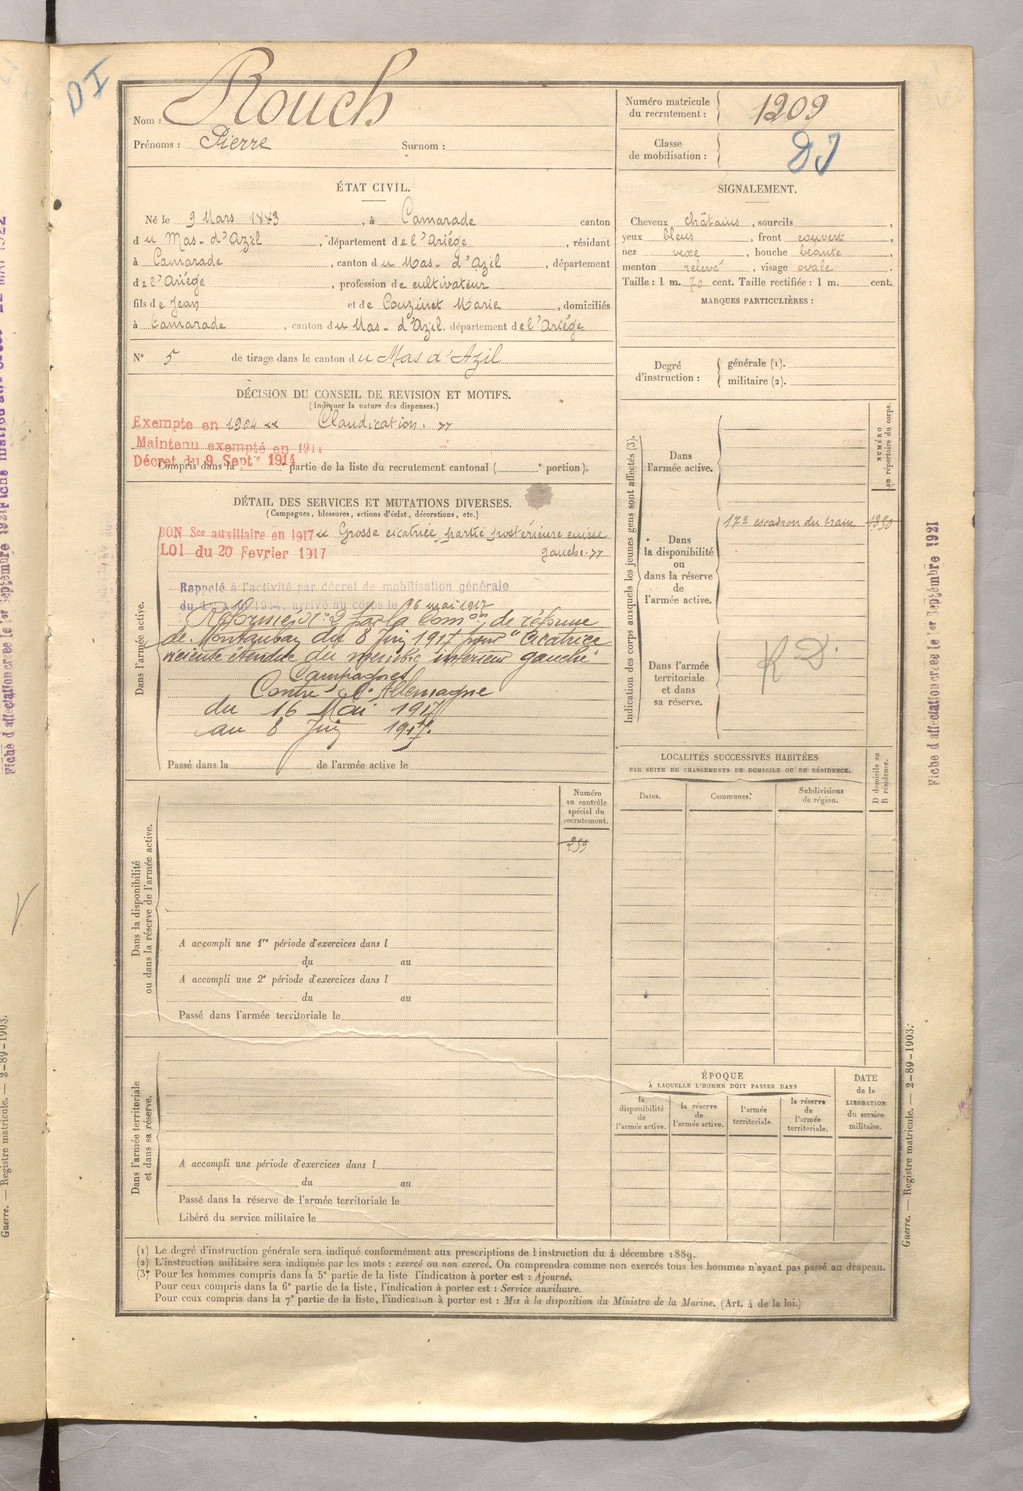 DI
Nom : Rouch
Prénoms : Pierre Surnom :
Numéro matricule du recrutement : 1209
Classe de mobilisation : DI
ÉTAT CIVIL.
Né le 9 Mars 1883, à Camarade canton
du Mas-d'Azil, département de l'Ariège, résidant
à Camarade, canton du Mas-d'Azil, département
de l'Ariège, profession de cultivateur
fils de Jean et de Couzinet Marie, domiciliés
à Camarade, canton du Mas-d'Azil, département de l'Ariège
N° 5 de tirage dans le canton du Mas d'Azil
SIGNALEMENT.
Cheveux châtains, sourcils ,
yeux bleus, front couvert,
nez , bouche ,
menton relevé, visage ovale.
Taille : 1 m. 70 cent. Taille rectifiée : 1 m. cent.
MARQUES PARTICULIÈRES :
Degré d'instruction : générale (1).
militaire (2).
DÉCISION DU CONSEIL DE REVISION ET MOTIFS.
(Indiquer la nature des dispenses.)
Exempté en 1904 « Claudication. »
Maintenu exempté en 1914
Décret du 9 Septre 1914
Compris dans la partie de la liste du recrutement cantonal ( e portion).
DÉTAIL DES SERVICES ET MUTATIONS DIVERSES.
(Campagnes, blessures, actions d'éclat, décorations, etc.)
BON Sce auxiliaire en 1917 « Grosse cicatrice, partie postérieure cuisse
LOI du 20 Fevrier 1917 gauche. »
Rappelé à l'activité par décret de mobilisation générale
du 1914, arrivé au corps le 16 mai 1917
Réformé n° 2 par la Comon de réforme
de Montauban du 8 Juin 1917 pour "Cicatrice
récente étendue du membre inférieur gauche"
Campagnes
Contre l'Allemagne
du 16 Mai 1917
au 8 Juin 1917.
Dans l'armée active.
Passé dans la de l'armée active le
Indication des corps auxquels les jeunes gens sont affectés (3).
NUMÉRO au répertoire du corps.
Dans l'armée active.
173 escadron du train 1380
Dans la disponibilité ou dans la réserve de l'armée active.
Dans l'armée territoriale et dans sa réserve.
R D.
LOCALITÉS SUCCESSIVES HABITÉES
PAR SUITE DE CHANGEMENTS DE DOMICILE OU DE RÉSIDENCE.
Dates. Communes. Subdivisions de région. D domicile ou R résidence.
Numéro au contrôle spécial du recrutement.
Dans la disponibilité ou dans la réserve de l'armée active.
A accompli une 1re période d'exercices dans l
du au
A accompli une 2e période d'exercices dans l
du au
Passé dans l'armée territoriale le
ÉPOQUE
À LAQUELLE L'HOMME DOIT PASSER DANS
la disponibilité de l'armée active. la réserve de l'armée active. l'armée territoriale. la réserve de l'armée territoriale.
DATE de la LIBÉRATION du service militaire.
Dans l'armée territoriale et dans sa réserve.
A accompli une période d'exercices dans l
du au
Passé dans la réserve de l'armée territoriale le
Libéré du service militaire le
(1) Le degré d'instruction générale sera indiqué conformément aux prescriptions de l'instruction du 4 décembre 1889.
(2) L'instruction militaire sera indiquée par les mots : exercé ou non exercé. On comprendra comme non exercés tous les hommes n'ayant pas passé au drapeau.
(3) Pour les hommes compris dans la 5e partie de la liste l'indication à porter est : Ajourné.
Pour ceux compris dans la 6e partie de la liste, l'indication à porter est : Service auxiliaire.
Pour ceux compris dans la 7e partie de la liste, l'indication à porter est : Mis à la disposition du Ministre de la Marine. (Art. 4 de la loi.)
Fiche d'affectation créée le 1er Septembre 1921
Guerre. — Registre matricule. — 2-89-1903.
Guerre. — Registre matricule. — 2-89-1903.